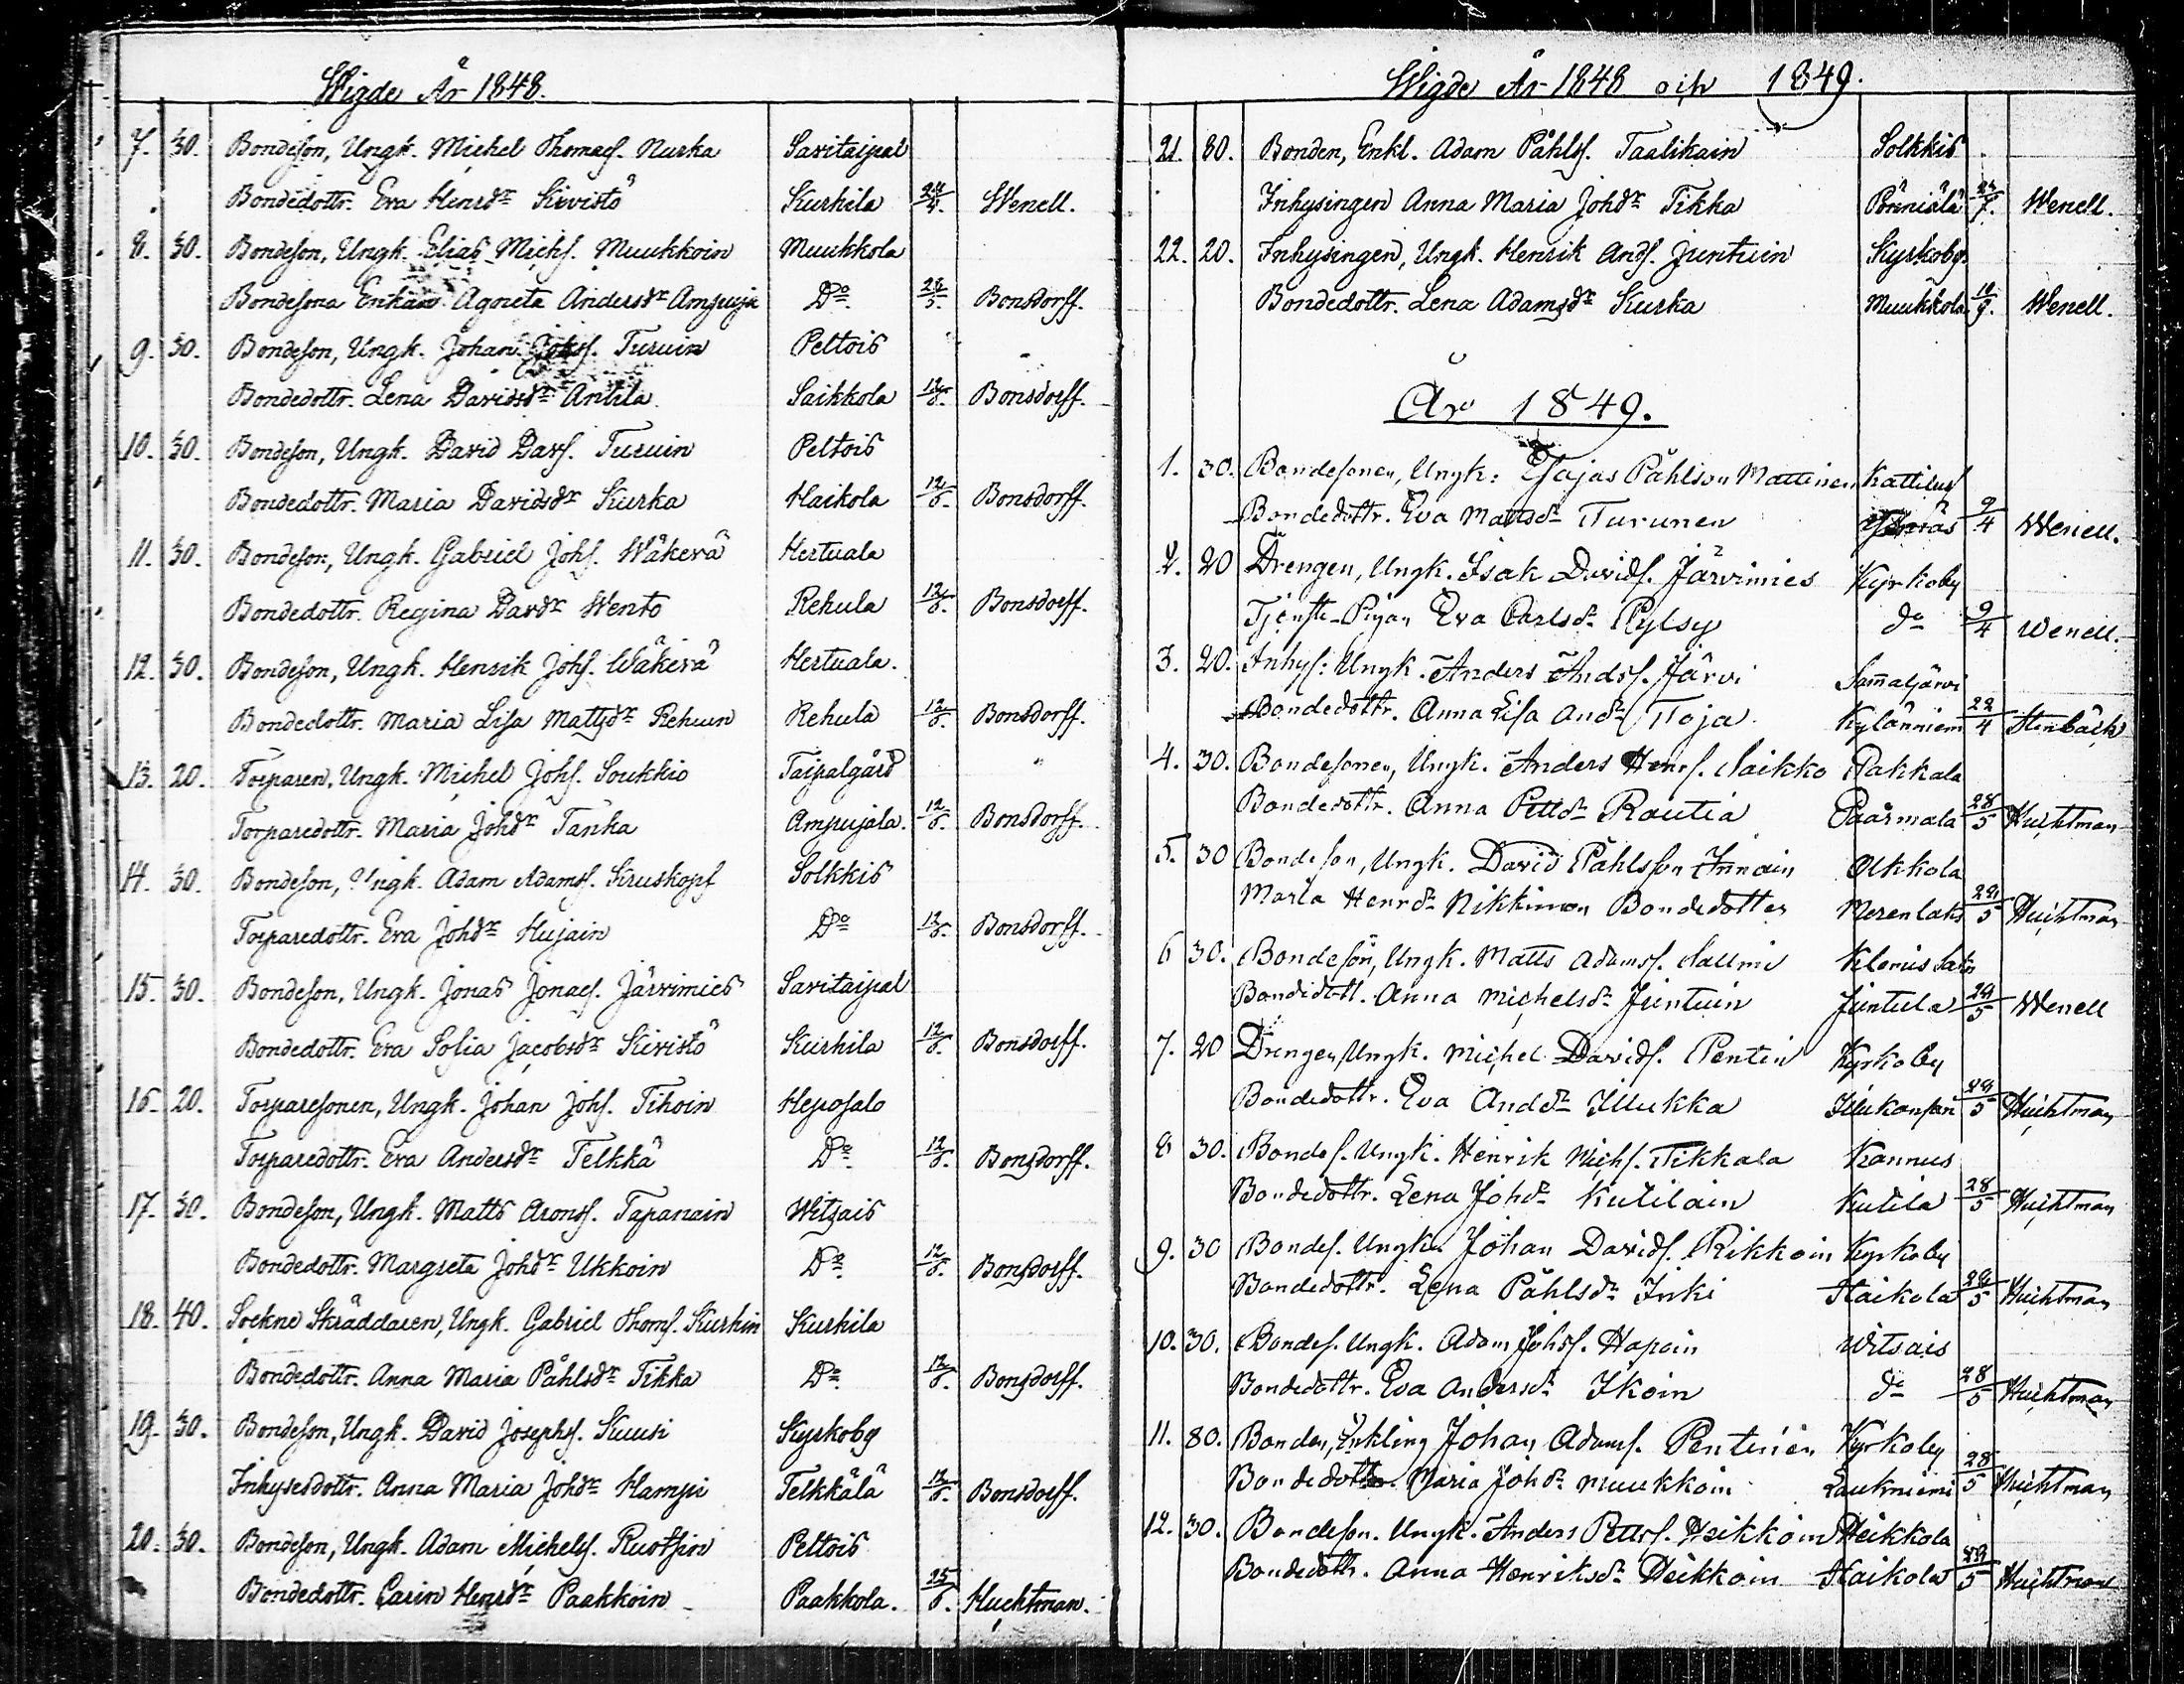 Wigde År 1848.
7. 30. Bondeson, Ungk. Michel Thomas. Nurka Savitaipal
Bondedottr. Eva Henrdr Kivistö Kurhila 24/4. Wenell.
8. 30. Bondeson, Ungk. Elias Michs. Muukkoin Muukkola
Bondesona Enkan Agneta Andersdr Ampuja Do 28/5. Bonsdorff.
9. 30. Bondeson, Ungk. Johan Johs. Turuin Peltois
Bondedottr. Lena Davidsdr Antila Saikkola 12/6. Bonsdorff.
10. 30. Bondeson, Ungk. David Davs. Turuin Peltois
Bondedottr. Maria Davidsdr Kurka Haikola 12/6. Bonsdorff.
11. 30. Bondeson, Ungk. Gabriel Johs. Wäkevä Hertuala
Bondedottr. Regina Davdr Wento Rehula 12/6. Bonsdorff.
12. 30. Bondeson, Ungk. Henrik Johs. Wäkevä Hertuala.
Bondedottr. Maria Lisa Mattsdr Rehuin Rehula 12/6. Bonsdorff.
13. 20. Torparen, Ungk. Michel Johs. Soukkio Taipalgård
Torparedottr. Maria Johdr Tanka Ampujala. 12/6. Bonsdorff.
14. 30. Bondeson, Ungk. Adam Adams. Kruskopf Solkkis
Torparedottr. Eva Johdr Hujain Do 12/6. Bonsdorff.
15. 30. Bondeson, Ungk. Jonas Jonas. Järvimies Savitaipal
Bondedottr. Eva Sofia Jacobsdr Kivistö Kurhila 12/6. Bonsdorff.
16. 20. Torparesonen, Ungk. Johan Johs. Tihoin Heposalo
Torparedottr. Eva Andersdr Telkkä Do 12/6. Bonsdorff.
17. 30. Bondeson, Ungk. Matts Arons. Tapanain Witsais
Bondedottr. Margreta Johdr Ukkoin Do 12/6. Bonsdorff.
18. 40. Sockne Skräddaren, Ungk. Gabriel Thoms. Kurhin Kurhila
Bondedottr. Anna Maria Påhlsdr Tikka Do 12/6. Bonsdorff.
19. 30. Bondeson, Ungk. David Josephs. Kuusi Kyrkoby
Inhysesdottr. Anna Maria Johdr Hampi Telkkälä 12/6. Bonsdorff.
20. 30. Bondeson, Ungk. Adam Michels. Ruotsin Peltois
Bondedottr. Carin Henrdr Paakkoin Paakkola. 25/6. Huchtman.
Wigde År 1848 och 1849.
21. 80. Bonden, Enkl. Adam Påhls. Taalikain Solkkis
Inhysingen Anna Maria Johdr Tikka Pönniälä 24/9. Wenell.
22. 20. Inhysingen, Ungk. Henrik Ands. Juntuin Kyrkoby.
Bondedottr. Lena Adamsdr Kurka Muukkola 10/9. Wenell.
År 1849.
1. 30. Bondesonen, Ungk: Esajas Påhlson Mattinen Kattilus
Bondedottr. Eva Mattsdr Turunen 9/4 Wenell.
2. 20 Drengen, Ungk. Isak Davids. Järvimies Kyrkoby
Tjenste-Pigan Eva Carlsdr Pylsy do 9/4 Wenell.
3. 20. Inhys: Ungk. Anders Ands. Järvi Sammaljärvi
Bondedottr. Anna Lisa Anddr Toja Kylänniem 22/4 Stenbäck
4. 30. Bondesonen, Ungk. Anders Henrs. Saikko Pakkala
Bondedottr. Anna Pettdr Rautia Päärmala 28/5 Huchtman
5. 30 Bondeson, Ungk. David Påhlsson Innain Olkkola
Maria Henrdr Nikkinen Bondedotter Merenlaks 29/5 Huchtman
6 30. Bondeson, Ungk. Matts Adams. Sallmi
Bondedott. Anna Michelsdr Juntuin Juntula 29/5 Wenell
7. 20 Drengen, Ungk. Michel Davids. Pentin Kyrkoby
Bondedottr. Eva Anddr Illukka 29/5 Huchtman
8 30. Bondes. Ungk. Henrik Michs. Tikkala Kannus
Bondedottr. Lena Johdr Kutilain Kutila 28/5 Huchtman
9. 30 Bondes. Ungk. Johan Davids. Rikkoin Kyrkoby
Bondedottr. Lena Påhlsdr Inki Haikola 28/5 Huchtman
10. 30. Bondes. Ungk. Adam Johs. Hapoin Witsais
Bondedottr. Eva Andersdr Ikoin do 28/5 Huchtman
11. 80. Bonden, Enkling Johan Adams. Pentinen Kyrkoby
Bondedotter Maria Johdr Muukkoin Laukniemi 28/5 Huchtman
12. 30. Bondeson. Ungk. Anders Petts. Heikkoin Heikkola
Bondedottr. Anna Henriksdr Heikkoin Haikola 29/5 Huchtman